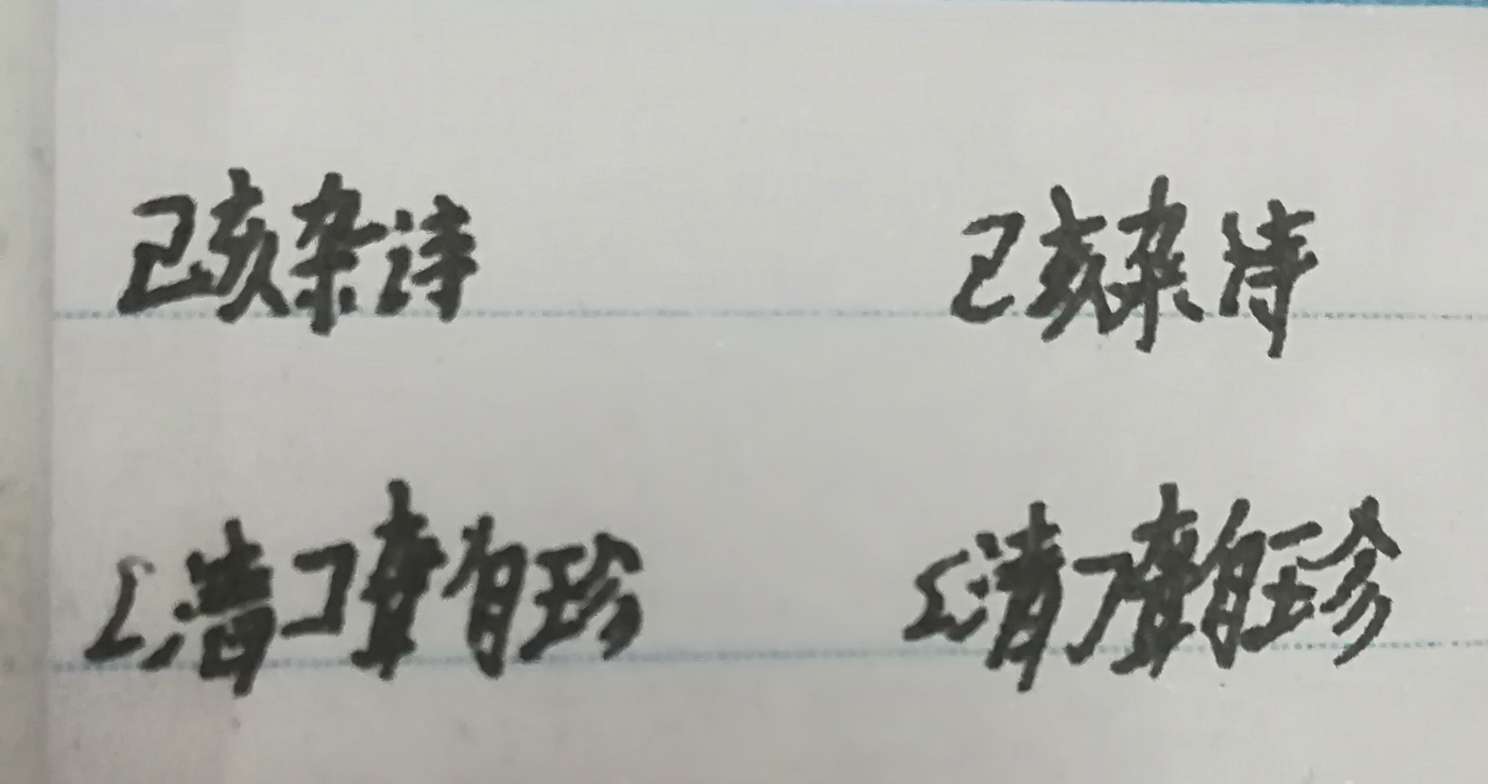 己亥杂诗 己亥杂诗
[清]龚自珍 [清]龚自珍